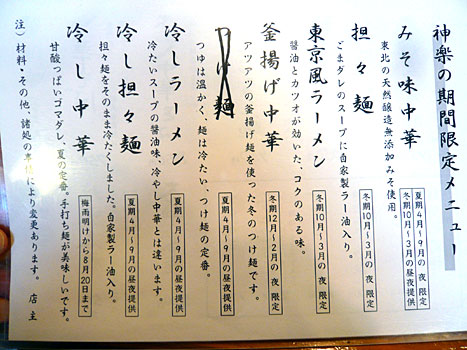 神楽の期間限定メニュー
みそ味中華
夏期4月〜9月の昼夜提供
冬期10月〜3月の昼 限定
東北の天然醸造無添加みそ使用。
担々麺
冬期10月〜3月の夜 限定
ごまダレのスープに自家製ラー油入り。
東京風ラーメン
冬期10月〜3月の夜 限定
醤油とカツオが効いた、コクのある味。
釜揚げ中華
冬期12月〜2月の夜 限定
アツアツの釜揚げ麺を使った冬のつけ麺です。
つけ麺
夏期4月〜9月の昼夜提供
つゆは温かく、麺は冷たい、つけ麺の定番。
冷しラーメン
夏期4月〜9月の昼夜提供
冷たいスープの醤油味、冷やし中華とは違います。
冷し担々麺
夏期4月〜9月の昼夜提供
担々麺をそのまま冷たくしました。自家製ラー油入り。
冷し中華
梅雨明けから8月20日まで
甘酸っぱいゴマダレ、夏の定番。手打ち麺が美味しいです。
注)材料・その他、諸処の事情により変更あります。 店主